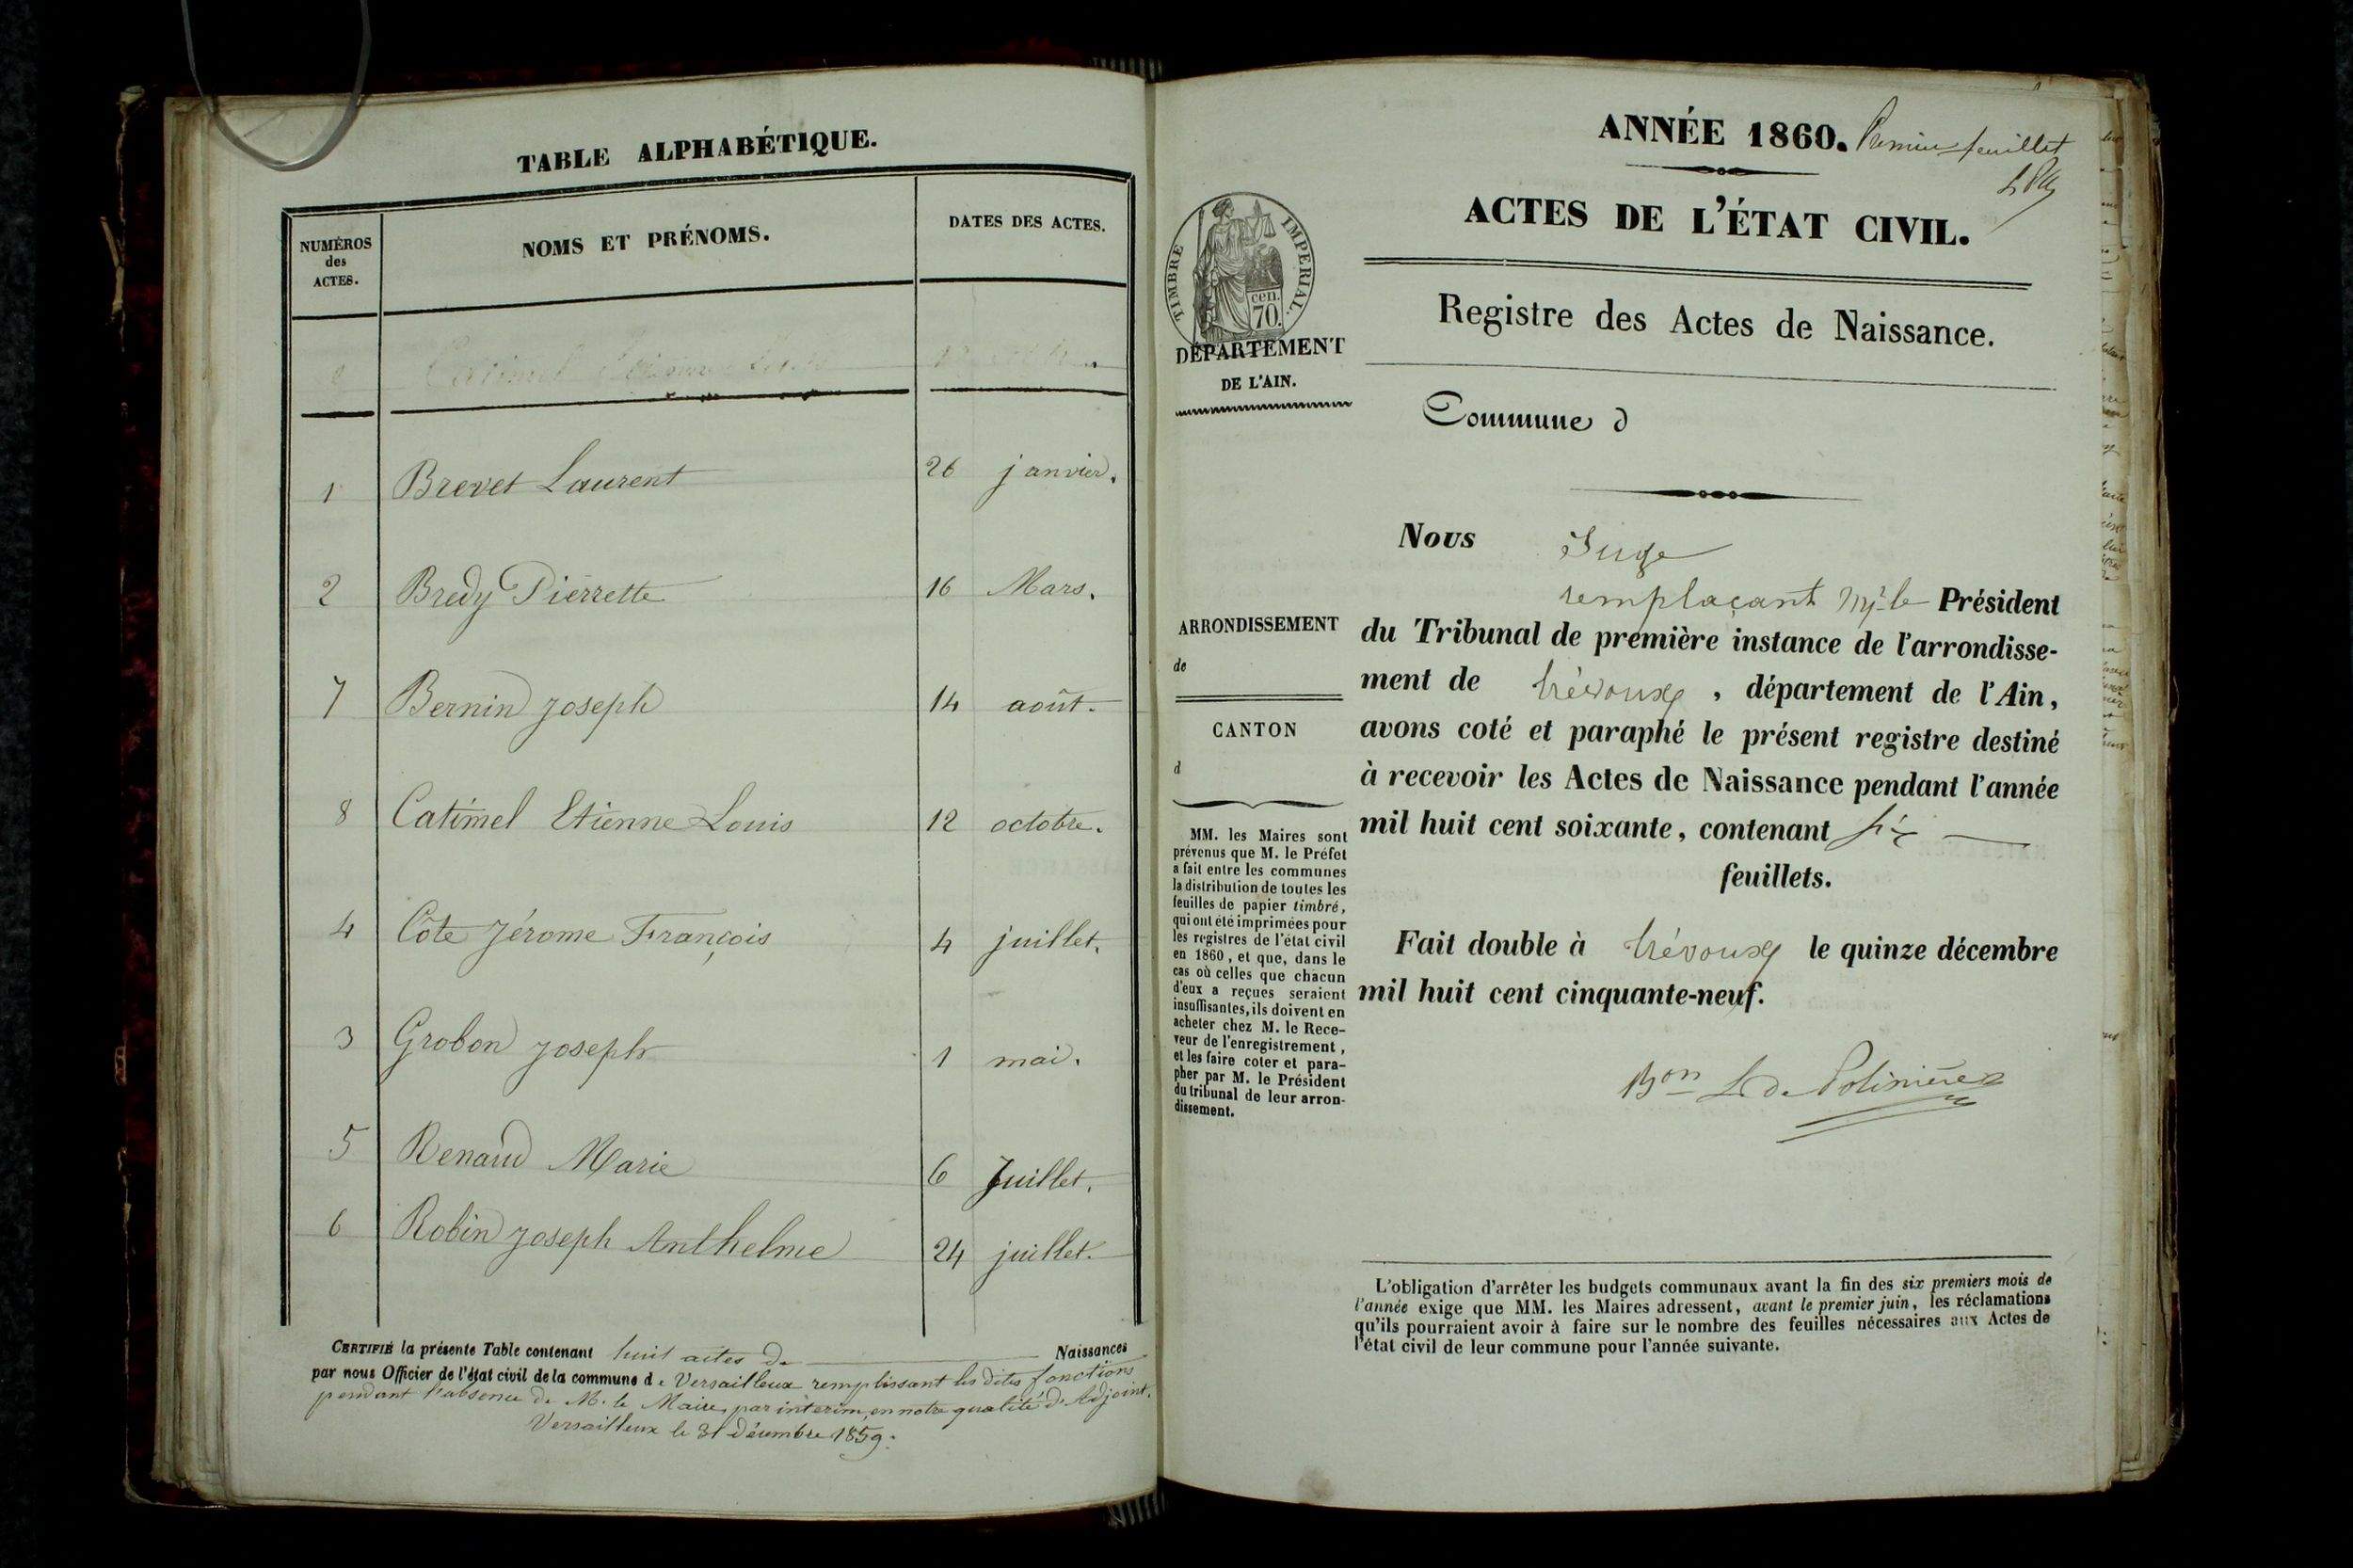 TABLE ALPHABÉTIQUE.
NUMÉROS
des
ACTES.
NOMS ET PRÉNOMS.
DATES DES ACTES.
1 Brevet Laurent 26 janvier.
2 Bredy Pierrette 16 Mars.
7 Bernin joseph 14 août.
8 Catimel Etienne Louis 12 octobre.
4 Côte Jérome François 4 juillet.
3 Grobon joseph 1 mai.
5 Renaud Marie 6 Juillet.
6 Robin joseph Anthelme 24 juillet.
CERTIFIÉ la présente Table contenant huit actes de Naissances
par nous Officier de l'état civil de la commune de Versailleux remplissant les dites fonctions
pendant l'absence de M. le Maire, par interim, en notre qualité d'Adjoint.
Versailleux le 31 décembre 1859.
ANNÉE 1860. Premier feuillet
ACTES DE L'ÉTAT CIVIL.
TIMBRE IMPERIAL.
cen.
70.
DÉPARTEMENT
DE L'AIN.
Registre des Actes de Naissance.
Commune d
ARRONDISSEMENT
de
CANTON
d
MM. les Maires sont
prévenus que M. le Préfet
a fait entre les communes
la distribution de toutes les
feuilles de papier timbré,
qui ont été imprimées pour
les registres de l'état civil
en 1860, et que, dans le
cas où celles que chacun
d'eux a reçues seraient
insuffisantes, ils doivent en
acheter chez M. le Rece-
veur de l'enregistrement,
et les faire coter et para-
pher par M. le Président
du tribunal de leur arron-
dissement.
Nous Juge
remplaçant Mr le Président
du Tribunal de première instance de l'arrondisse-
ment de trévoux, département de l'Ain,
avons coté et paraphé le présent registre destiné
à recevoir les Actes de Naissance pendant l'année
mil huit cent soixante, contenant six
feuillets.
Fait double à trévoux le quinze décembre
mil huit cent cinquante-neuf.
Bon L de Polinière
L'obligation d'arrêter les budgets communaux avant la fin des six premiers mois de
l'année exige que MM. les Maires adressent, avant le premier juin, les réclamations
qu'ils pourraient avoir à faire sur le nombre des feuilles nécessaires aux Actes de
l'état civil de leur commune pour l'année suivante.